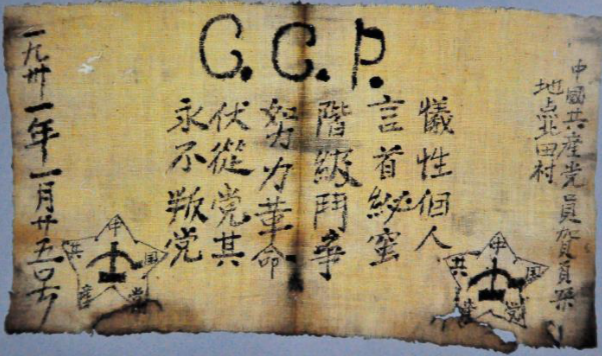 C.C.P.
中國共産党員賀
地点北田村
犧性個人
言首秘蜜
階級鬥争
努力革命
伏從党其
永不叛党
一九卅一年一月廿五号
中国共産党
中国共産党